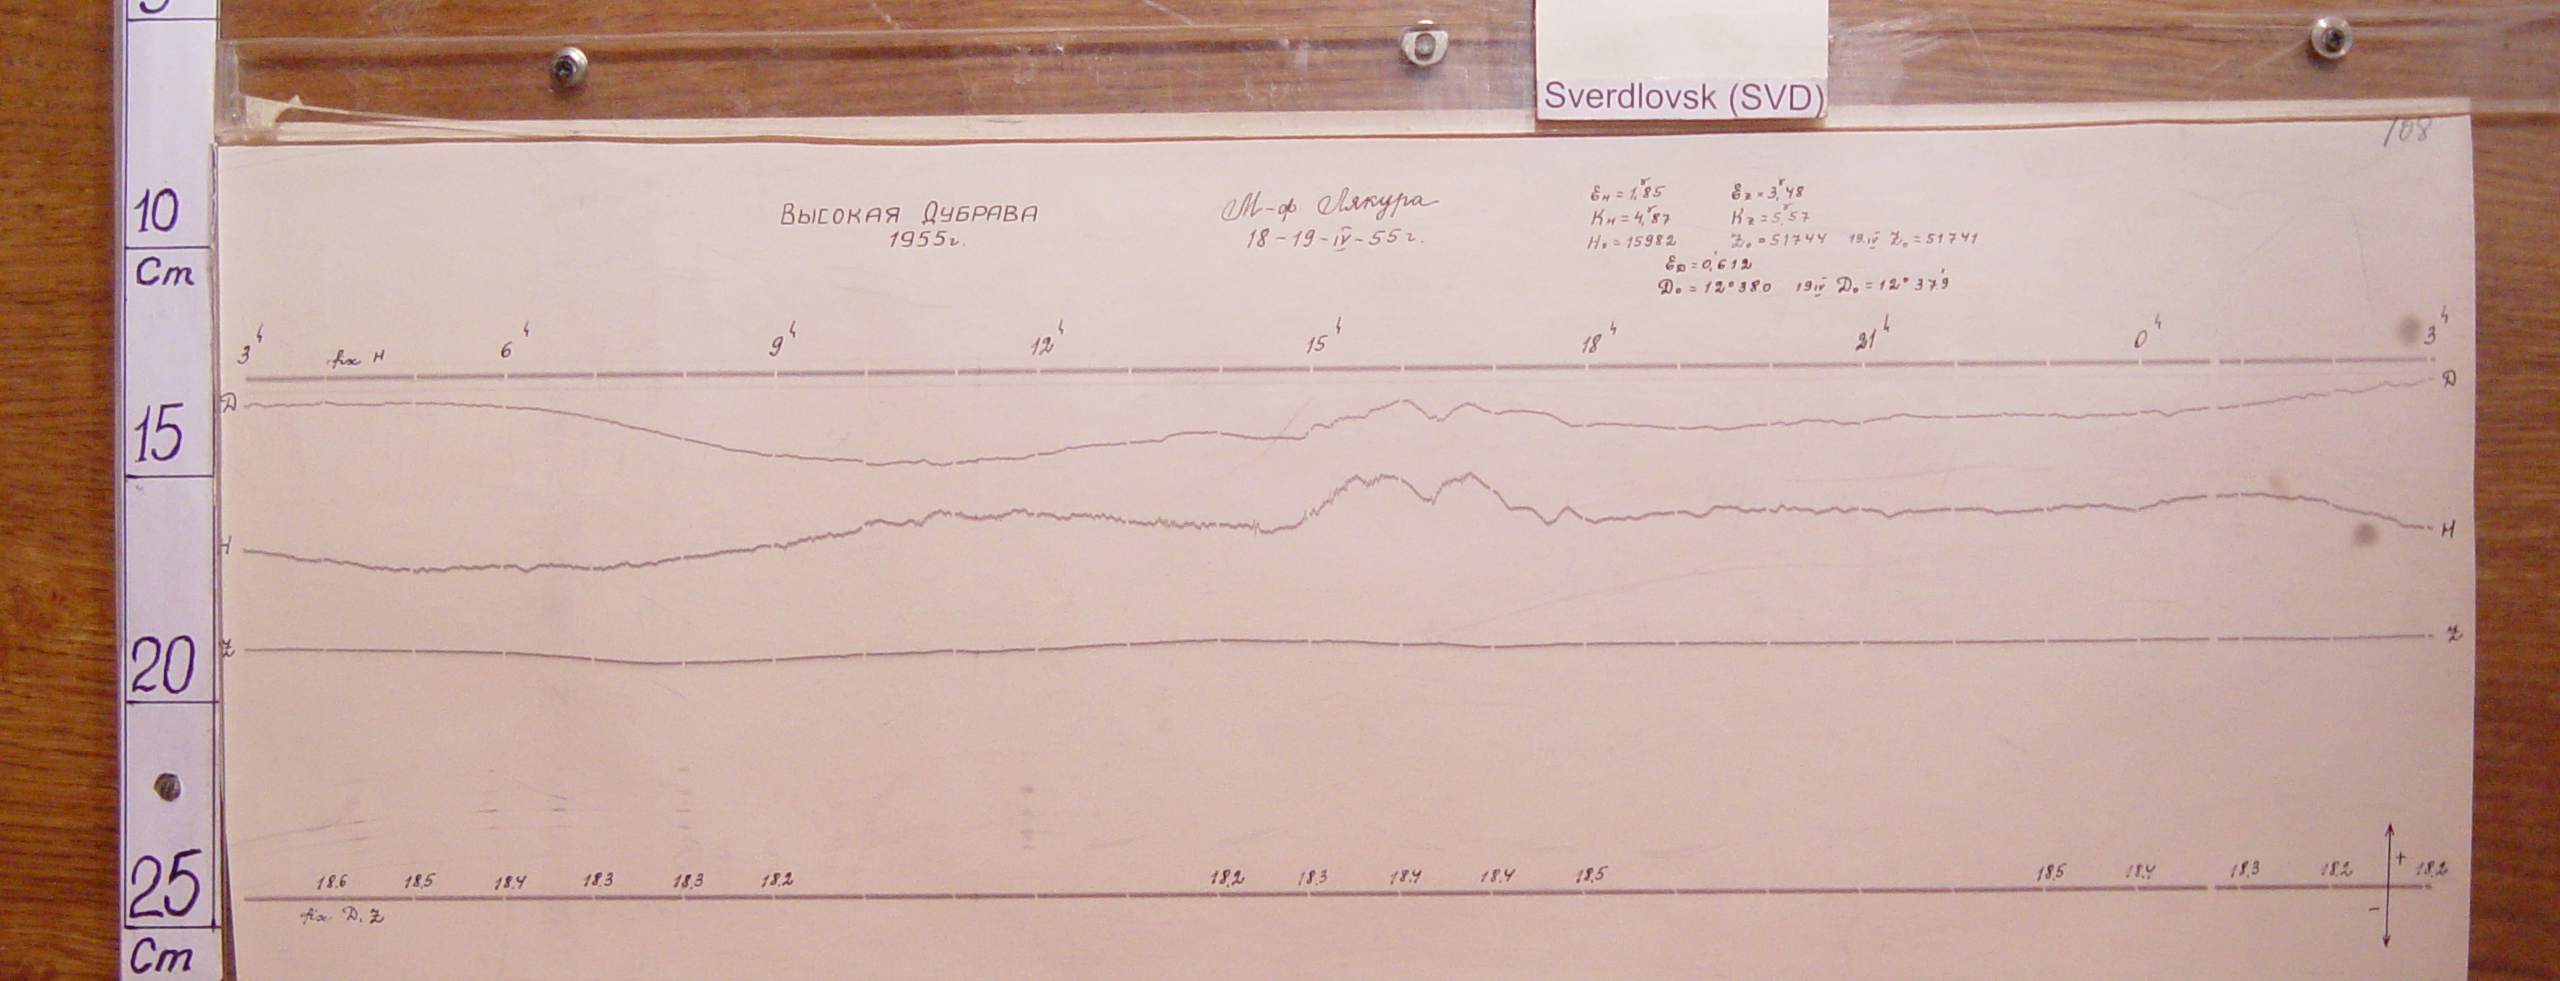 Sverdlovsk (SVD)
108
10
Cm
15
20
25
Cm
ВЫСОКАЯ ДУБРАВА
1955г.
М-ф Лякура
18-19-IV-55г.
Ɛн=1,ᵞ85 Ɛz=3,ᵞ48
Kн=4,ᵞ87 Kz=5,ᵞ57
H₀=15982 Z₀=51744 19.IV Z₀=51741
ƐD=0,′612
D₀=12°38.0 19IV D₀=12°37.′9
3ʰ fix H 6ʰ 9ʰ 12ʰ 15ʰ 18ʰ 21ʰ 0ʰ 3ʰ
D D
H H
Z Z
18.6 18.5 18.4 18.3 18.3 18.2 18.2 18.3 18.4 18.4 18.5 18.5 18.4 18.3 18.2 + 18.2
fix D, Z −